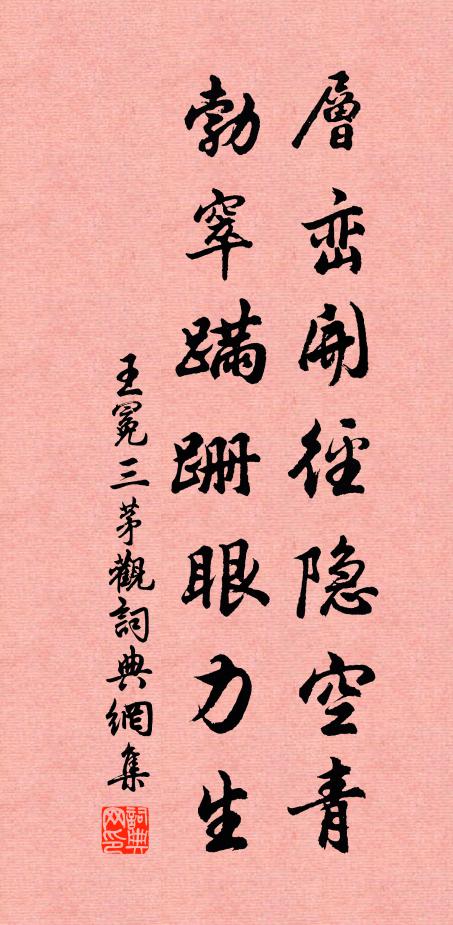 層峦開徑隐空青
勃窣蹣跚眼力生
王冕三茅觀詞典網集
詞典网印